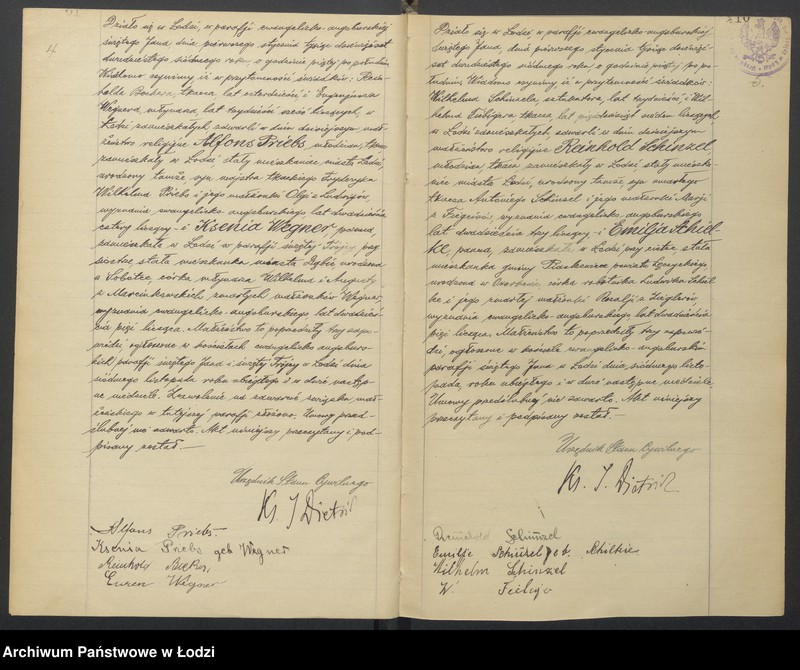 4
Działo się w Łodzi, w parafji ewangelicko-augsburskiej
świętego Jana, dnia pierwszego stycznia tysiąc dziewięćset
dwudziestego siódmego roku, o godzinie piątej po południu.
Wiadomo czynimy iż w przytomności świadków:
tkacza, lat czterdzieści i Eugenjusza
Wegnera, młynarza, lat trzydzieści sześć liczących, w
Łodzi zamieszkałych zawarli w dniu dzisiejszym mał-
żeństwo religijne Alfons Priebs, młodzian, tkacz
zamieszkały w Łodzi stały mieszkaniec miasta Łodzi,
urodzony tamże syn majstra tkackiego
Wilhelma Priebs i jego małżonki Olgi z
wyznania ewangelicko augsburskiego lat dwadzieścia
cztery liczący - i Ksenia Wegner, panna,
zamieszkała w Łodzi w parafji świętej Trójcy, przy
siostrze, stała mieszkanka miasta Dąbie urodzona
w Sobótce, córka młynarza Wilhelma i Augusty
z Marcinkowskich, zmarłych małżonków Wegner,
wyznania ewangelicko-augsburskiego lat dwadzieścia
pięć licząca. Małżeństwo to poprzedziły trzy zapo-
wiedzi ogłoszone w kościołach ewangelicko augsburs-
kich parafji świętego Jana i świętej Trójcy w Łodzi dnia
siódmego listopada roku ubiegłego i w dwie następ-
ne niedziele. Zezwolenie na zawarcie związku mał-
żeńskiego w tutejszej parafji złożono. Umowy przed-
ślubnej nie zawarto. Akt niniejszy przeczytany i pod-
pisany został.—
Urzędnik Stanu Cywilnego
Ks. J Dietrich
Alfons Priebs.
Ksenia Priebs geb Wegner
Reinhold
Wegner
Działo się w Łodzi, w parafji ewangelicko-augsburskiej
świętego Jana, dnia pierwszego stycznia tysiąc dziewięć-
set dwudziestego siódmego roku, o godzinie piątej po po-
łudniu. Wiadomo czynimy iż w przytomności świadków:
Wilhelma Schinzela, lat trzydzieści, i Wil-
helma tkacza, lat jeden liczących
w Łodzi zamieszkałych zawarli w dniu dzisiejszym
małżeństwo religijne Reinhold Schinzel
młodzian tkacz zamieszkały w Łodzi stały miesz-
kaniec miasta Łodzi, urodzony tamże, syn zmarłego
tkacza Antoniego Schinzel i jego małżonki Marji
z wyznania ewangelicko-augsburskiego
lat dwadzieścia trzy liczący - i Emilja Schiel-
ke, panna, zamieszkała w Łodzi przy ojcu stała
mieszkanka gminy Piaskowice powiatu Łęczyckiego
urodzona w córka robotnika Ludwika Schiel-
ke i jego zmarłej małżonki Rozalji z
wyznania ewangelicko-augsburskiego lat dwadzieścia
pięć licząca. Małżeństwo to poprzedziły trzy zapowie-
dzi, ogłoszone w kościele ewangelicko-augsburskim
parafji świętego Jana w Łodzi dnia siódmego listo-
pada roku ubiegłego i w dwie następne niedziele.
Umowy przedślubnej nie zawarto. Akt niniejszy
przeczytany i podpisany został.—
Urzędnik Stanu Cywilnego
Ks. J. Dietrich
Reinhold Schinzel
Emilje Schinzel geb. Schilke
Wilhelm Schinzel
W.
Archiwum Państwowe w Łodzi